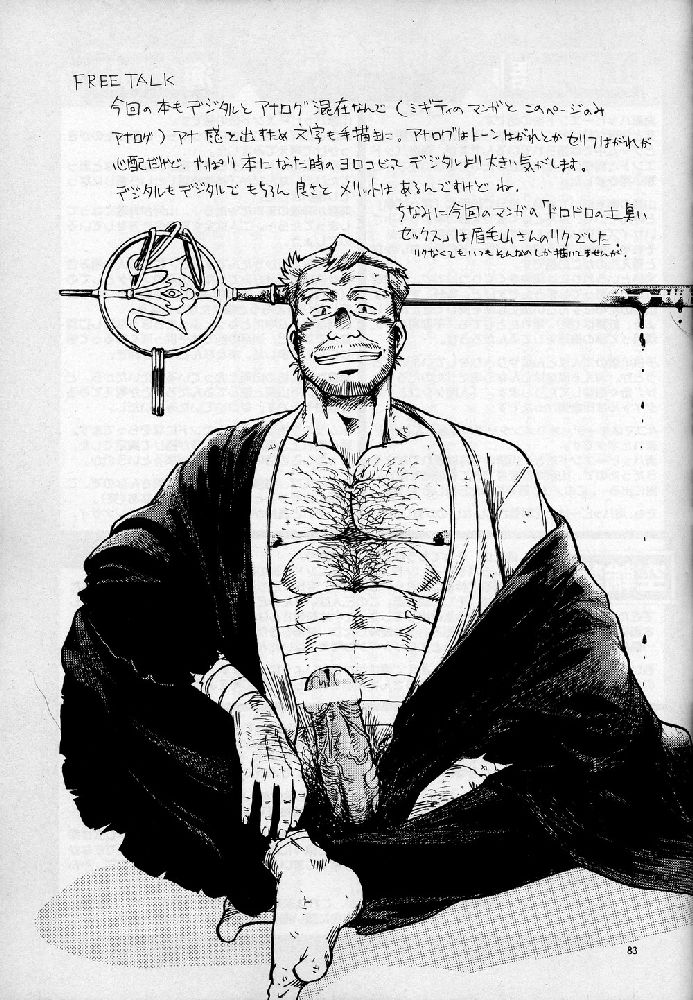 FREE TALK
今回の本もデジタルとアナログ混在なんで(ミギティのマンガとこのページのみ
アナログ)アナ感を出すため文字も手描きに。アナログはトーンはがれとかセリフはがれが
心配だけど、やっぱり本になった時のヨロコビってデジタルより大きい気がします。
デジタルもデジタルでもちろん良さとメリットはあるんですけどね。
ちなみに今回のマンガの「ドロドロの土臭い
セックス」は眉毛山さんのリクでした。
リクなくてもいつもそんなのしか描いてませんが。
83